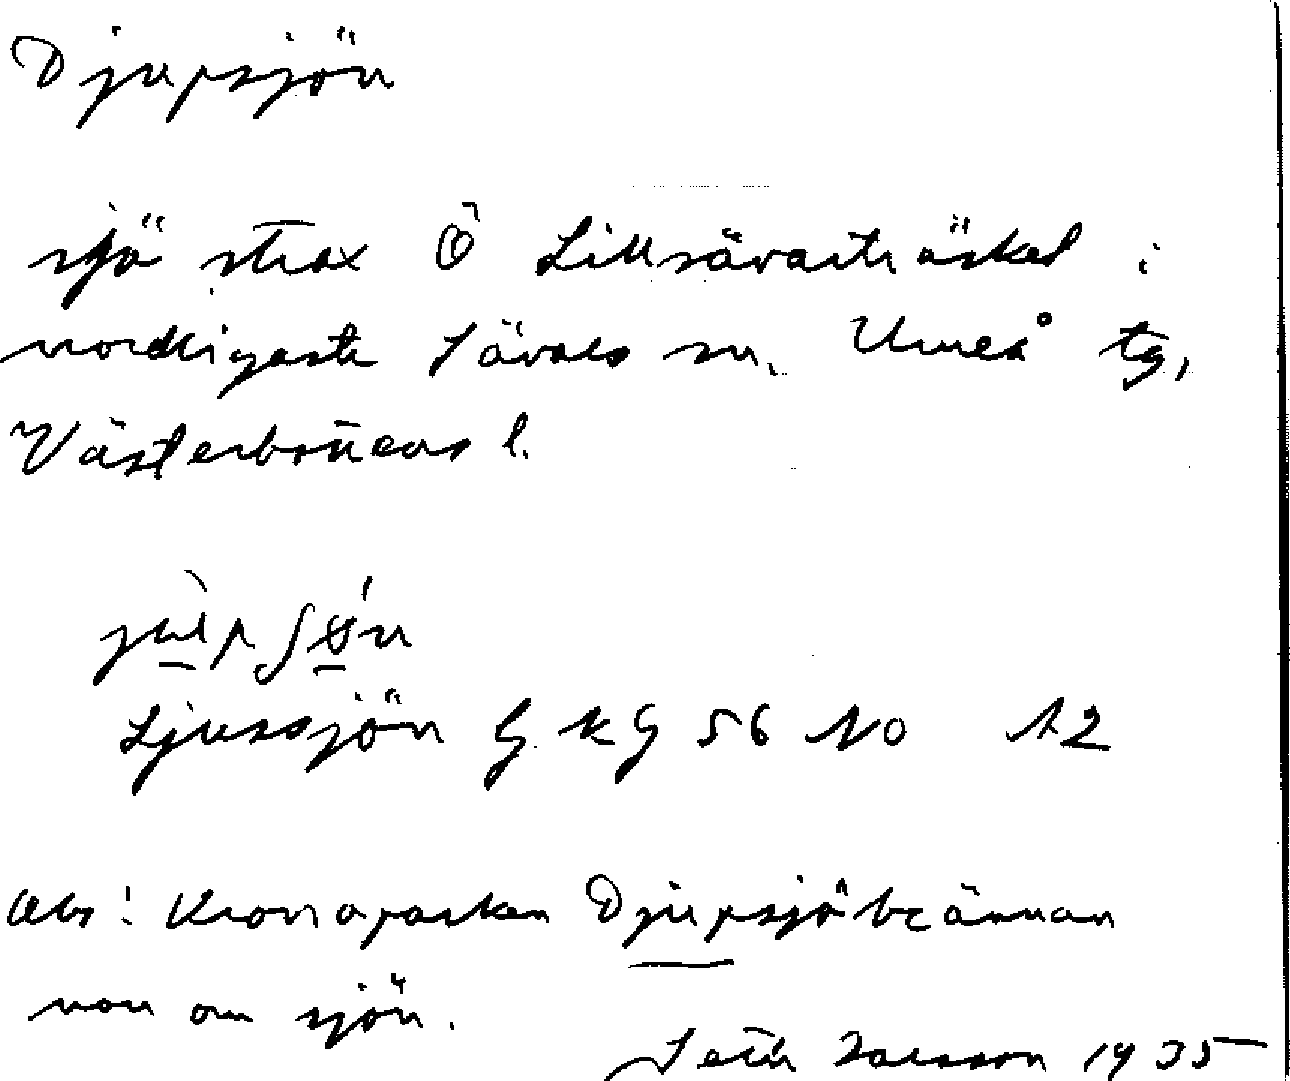 Djupsjön
sjö strax Ö Lillsävarträsket i
nordligaste Sävars sn. Umeå tg,
Västerbottens l.
Ljussjön G kg 56 NO 12
Obs! Kronoparken Djupsjöbrännan
norr om sjön.
Seth Larsson 1935